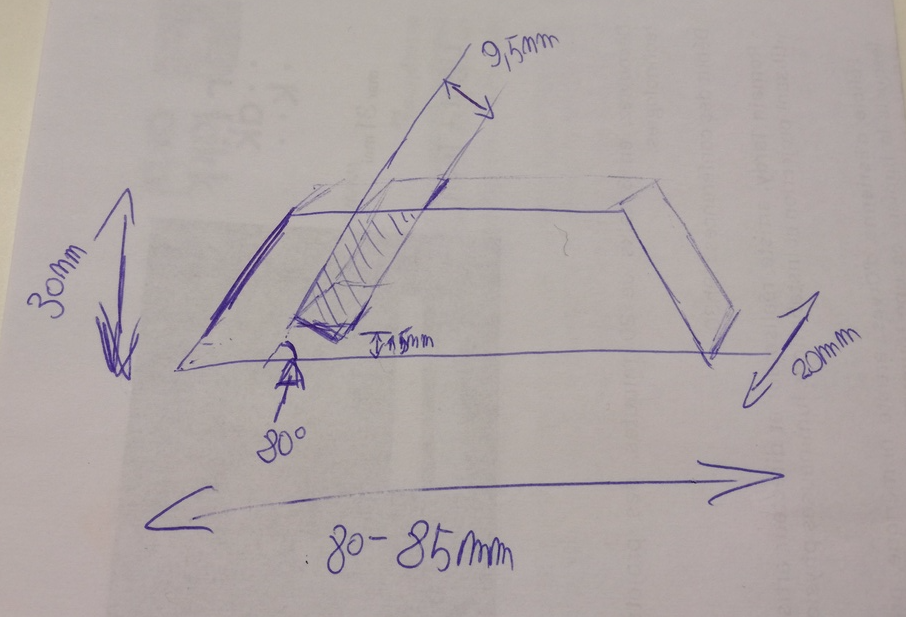 9,5mm
30mm
20mm
80°
80-85mm